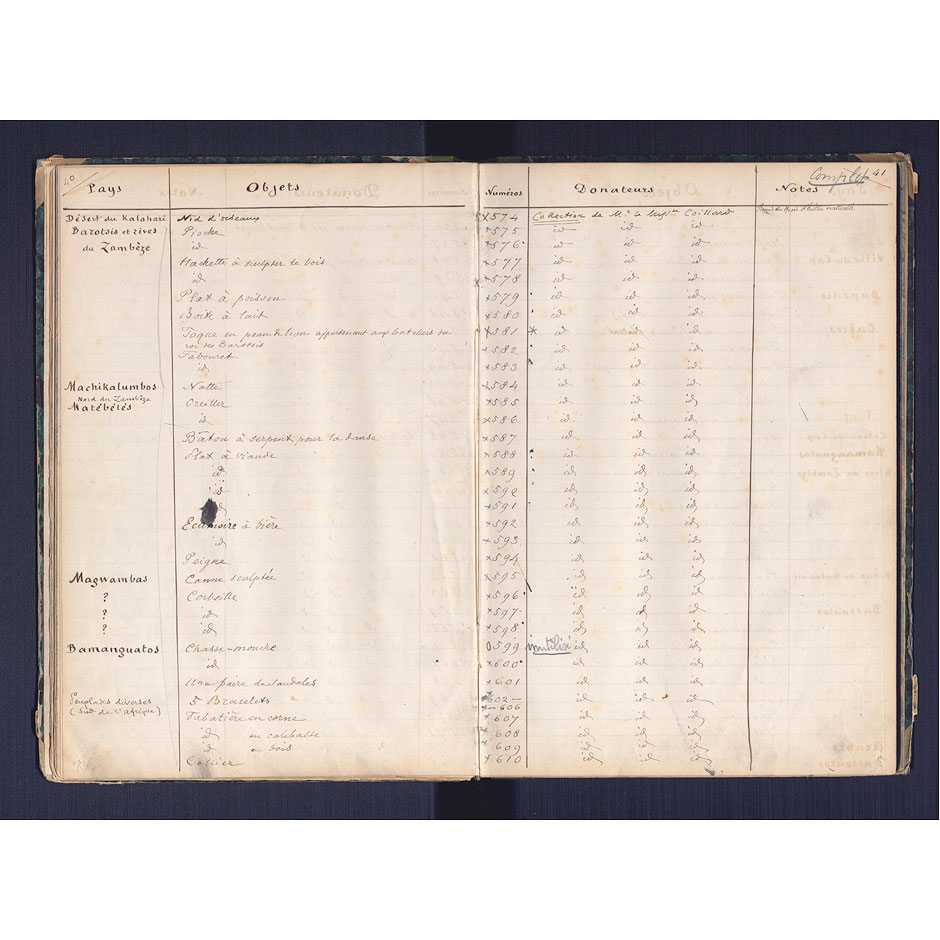 40
Pays Objets Numéros Donateurs Notes
Complet 41
Désert du Kalahari Nid d'oiseaux x574 Collection de Mr le Coillard
Barotsis et rives Pioche x575 id id id
du Zambèze id x576 id id id
Hachette à sculpter le bois x577 id id id
id x578 id id id
Plat à poisson x579 id id id
Boite à lait x580 id id id
Toque en peau de lion appartenant aux bateliers du x581 * id id id
roi des Barotsis
Tabouret x582 id id id
id x583 id id id
Machikalumbos Natte x584 id id id
Nord du Zambèze
Matébélés Oreiller x585 id id id
id x586 id id id
Bâton à serpent pour la danse x587 id id id
Plat à viande x588 id id id
id x589 id id id
id x590 id id id
id x591 id id id
Ecumoire à bière x592 id id id
id x593 id id id
Peigne x594 id id id
Magwambas Canne sculptée x595 id id id
? Corbeille x596 id id id
? id x597 id id id
? id x598 id id id
Bamanguatos Chasse-mouche 0599 inutilisé id id id
id x600 id id id
Une paire de sandales x601 id id id
Peuplades diverses 5 Bracelets x602 – id id id
(Sud de l'Afrique) x–606
Tabatière en corne x607 id id id
id en calebasse x608 id id id
id en bois x609 id id id
Collier x610 id id id